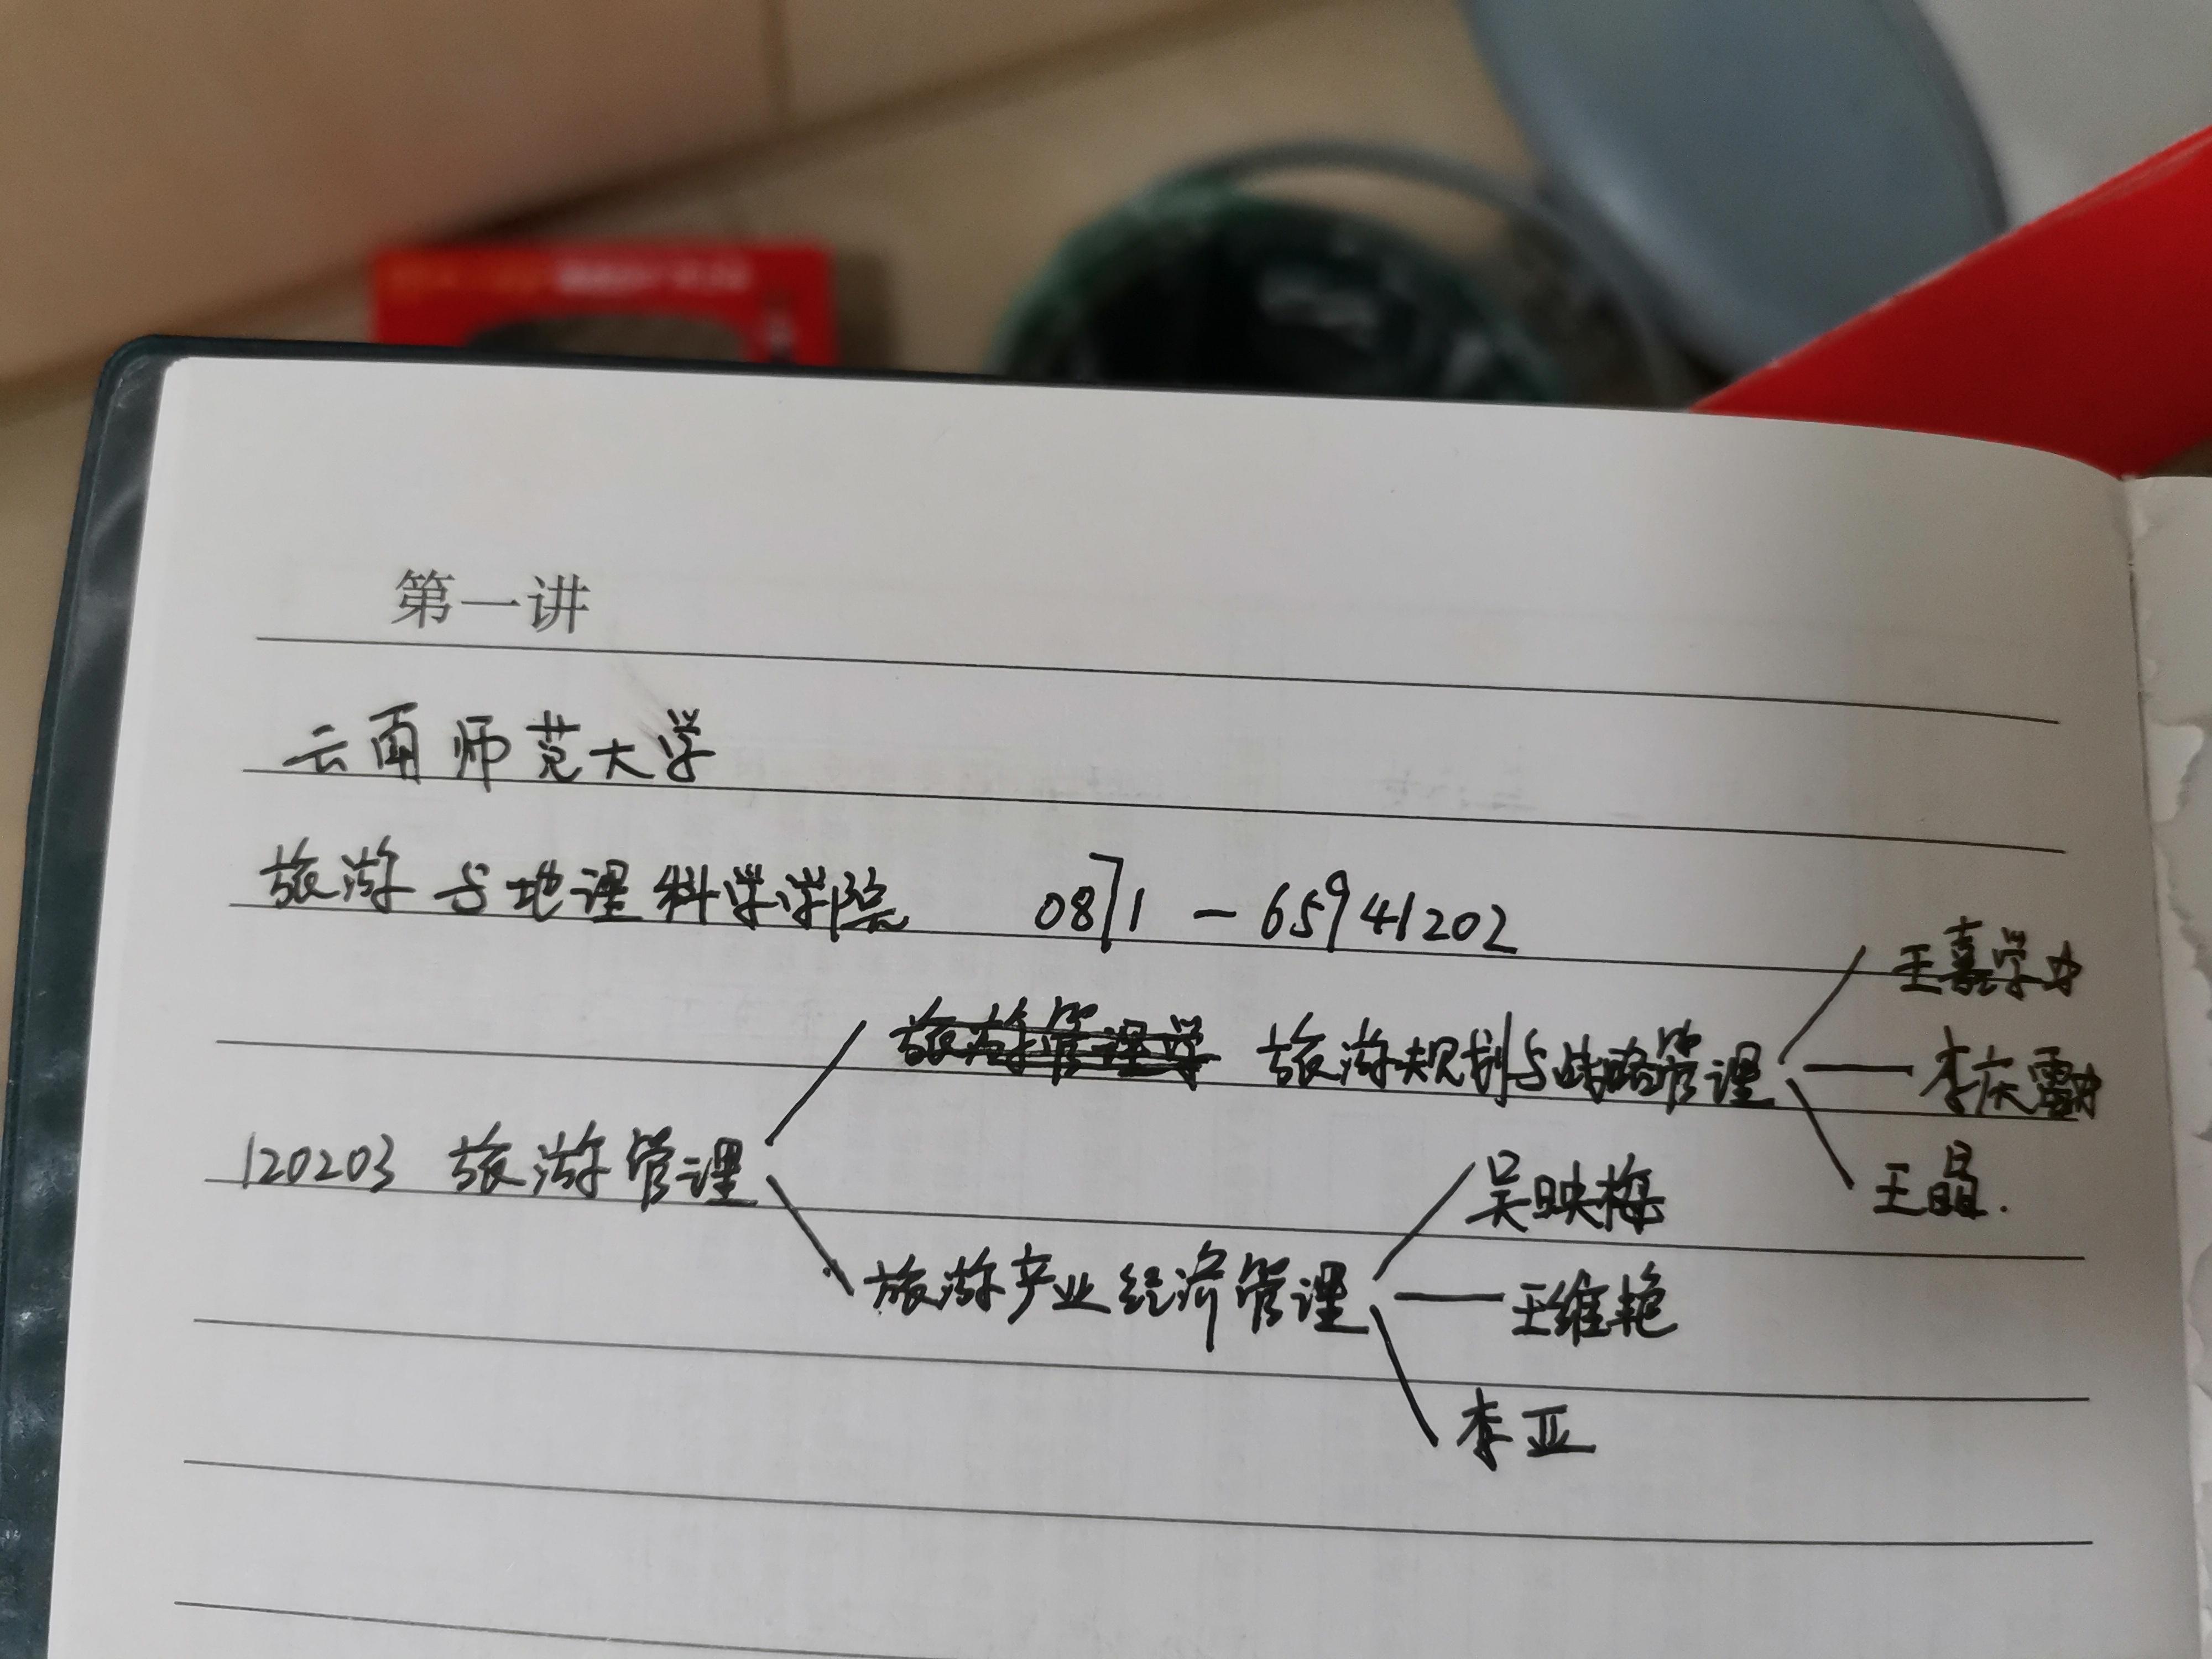 第一讲
云南师范大学
旅游与地理科学学院 0871-65941202
王嘉学
旅游管理学 旅游规划与战略管理
李庆雷
120203 旅游管理
王晶.
吴映梅
旅游产业经济管理
王维艳
李亚